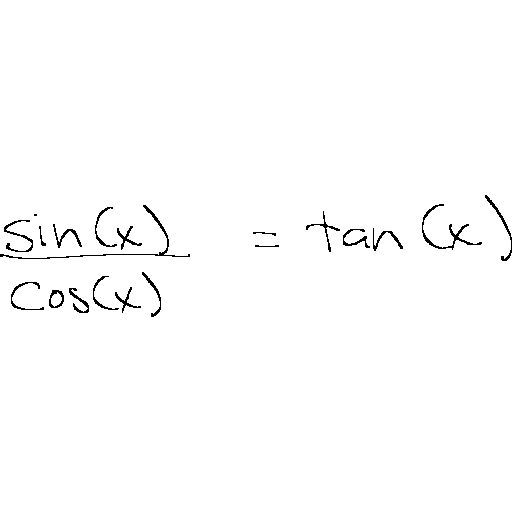 sin(x)
cos(x)
= tan(x)